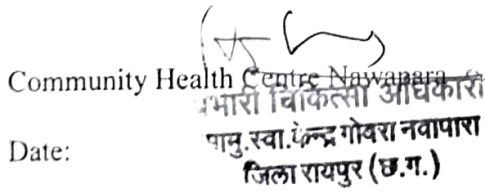 Community Health Centre Nawapara
प्रभारी चिकित्सा अधिकारी
Date:
सामु.स्वा.केन्द्र गोबरा नवापारा
जिला रायपुर (छ.ग.)